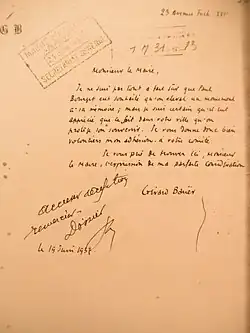 G B
23 Avenue Foch XVI
SECRÉTARIAT GÉNÉRAL
Monsieur le Maire,
Je ne suis pas tout à fait sûr que Paul
Bourget eût souhaité qu'on élevât un monument
à sa mémoire ; mais je suis certain qu'il eût
apprécié que le fait dans votre ville qu'on
projette d'en souvenir. Je vous donne donc bien
volontiers mon adhésion à votre comité.
Je vous prie de trouver ici, Monsieur
le Maire, l'expression de ma parfaite considération
Gérard Bauër
accuser réception
remercier
Dossier
le 19 Juin 1937